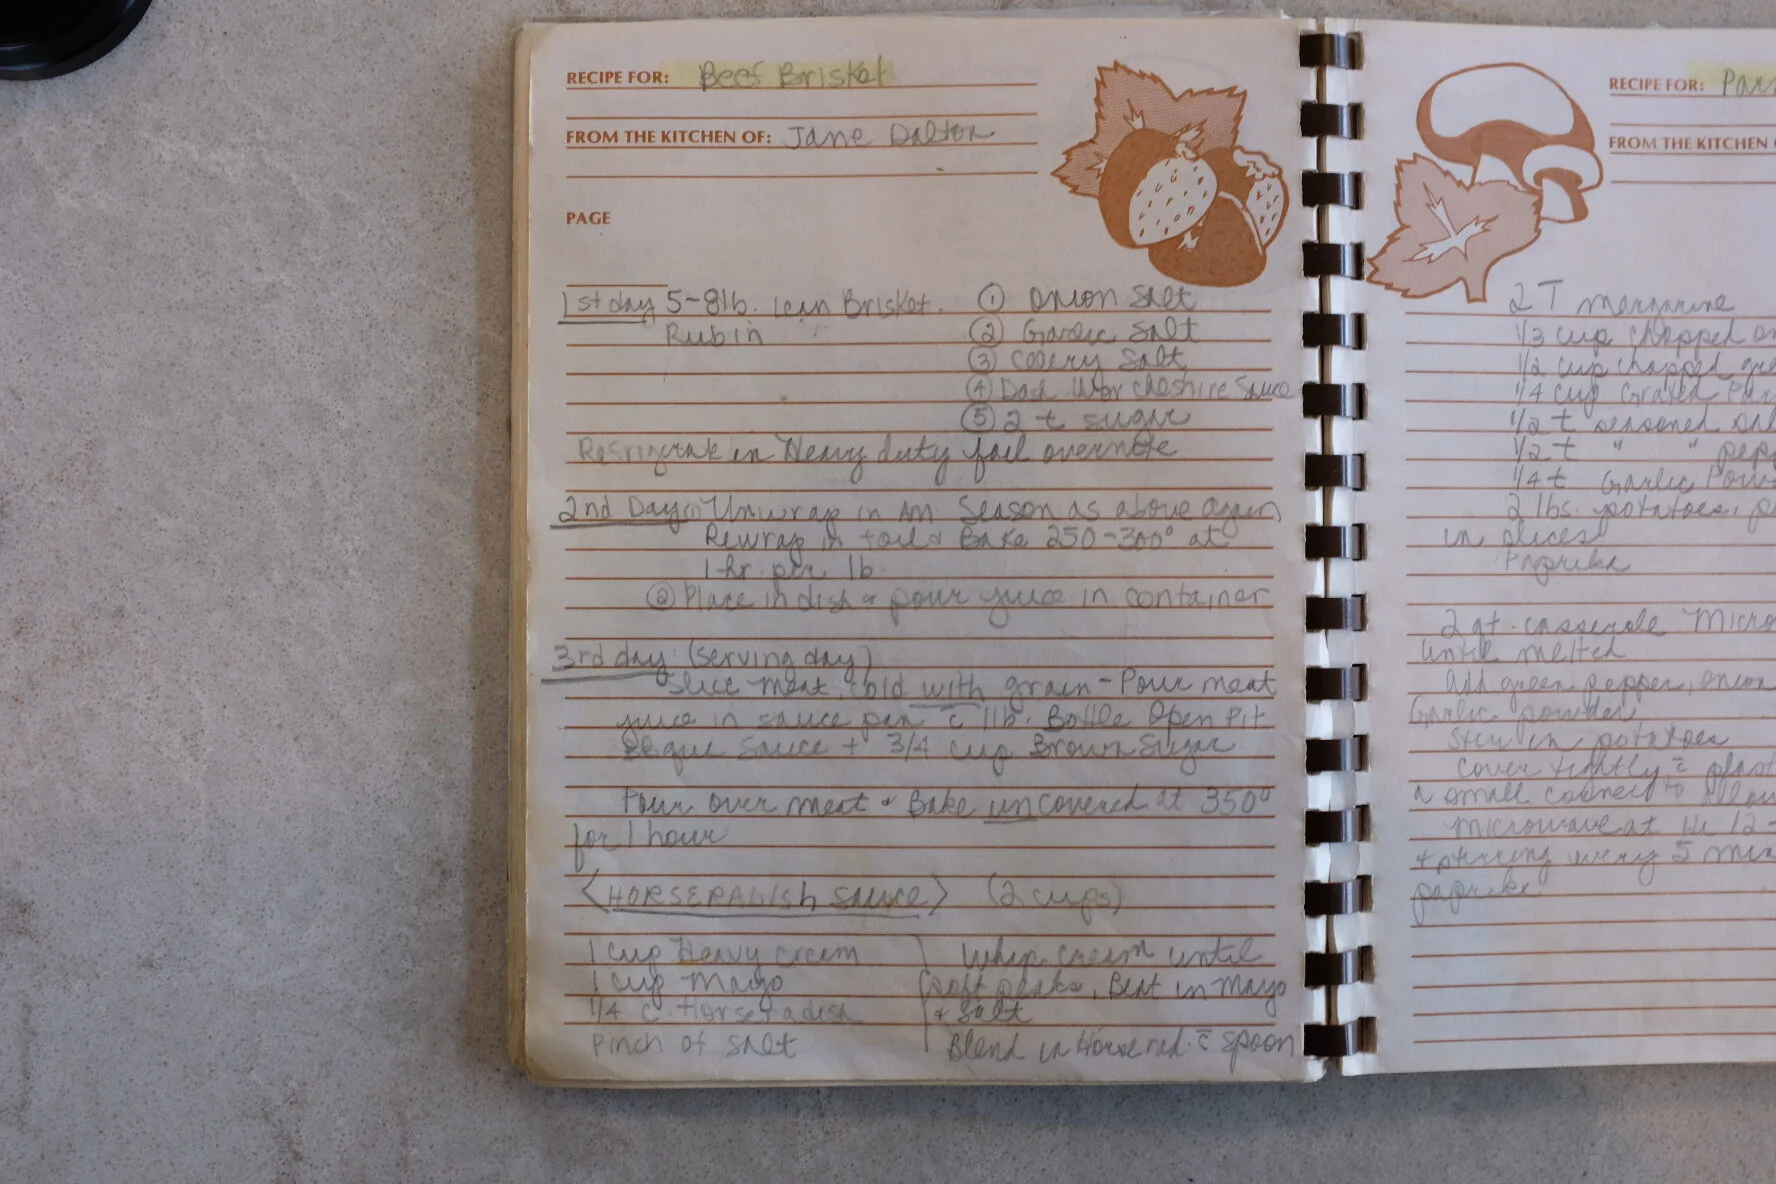 RECIPE FOR: Beef Brisket
FROM THE KITCHEN OF: Jane Dalton
PAGE
1st day 5-8lb. Lean Brisket. ① Onion Salt
Rub in ② Garlic Salt
③ Celery Salt
④ Dash Worcheshire Sauce
⑤ 2 t sugar
Refrigerate in Heavy duty foil overnite
2nd Day ① Unwrap in Am. Season as above again
Rewrap in foil & Bake 250-300° at
1 hr. per lb.
② Place in dish & pour juice in container
3rd day: (serving day)
Slice meat, cold with grain - Pour meat
juice in sauce pan c̄ 1lb. Bottle Open Pit
BBque Sauce + 3/4 cup Brown Sugar
Pour over meat & Bake uncovered at 350°
for 1 hour
<HORSERADISH SAUCE> (2 cups)
1 cup Heavy cream Whip cream until
1 cup Mayo soft peaks, Beat in Mayo
1/4 c. Horseradish & Salt
Pinch of salt Blend in Horserad. c̄ spoon
RECIPE FOR: Par
FROM THE KITCHEN
2 T margarine
1/3 cup chopped on
1/2 cup chopped gre
1/4 cup Grated Par
1/2 t seasoned sal
1/2 t " " pepp
1/4 t Garlic Pow
2 lbs. potatoes, p
in slices
Paprika
2 qt. casserole Micro
until melted
Add green pepper, onion
Garlic powder
Stir in potatoes
Cover tightly c̄ plast
a small corner to allow
Microwave at Hi 12-
+ stirring every 5 min
paprika